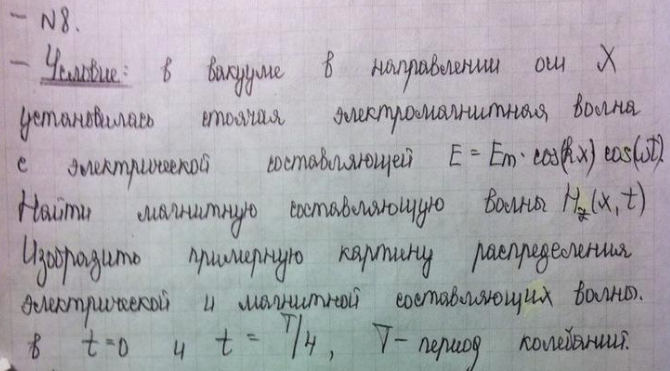 – N8.
– Условие: в вакууме в направлении оси X
установилась стоячая электромагнитная волна
с электрической составляющей E = Em · cos(kx) cos(ωt)
Найти магнитную составляющую волны Hz(x, t)
Изобразить примерную картину распределения
электрической и магнитной составляющих волны.
в t=0 и t = T/4, T – период колебаний.